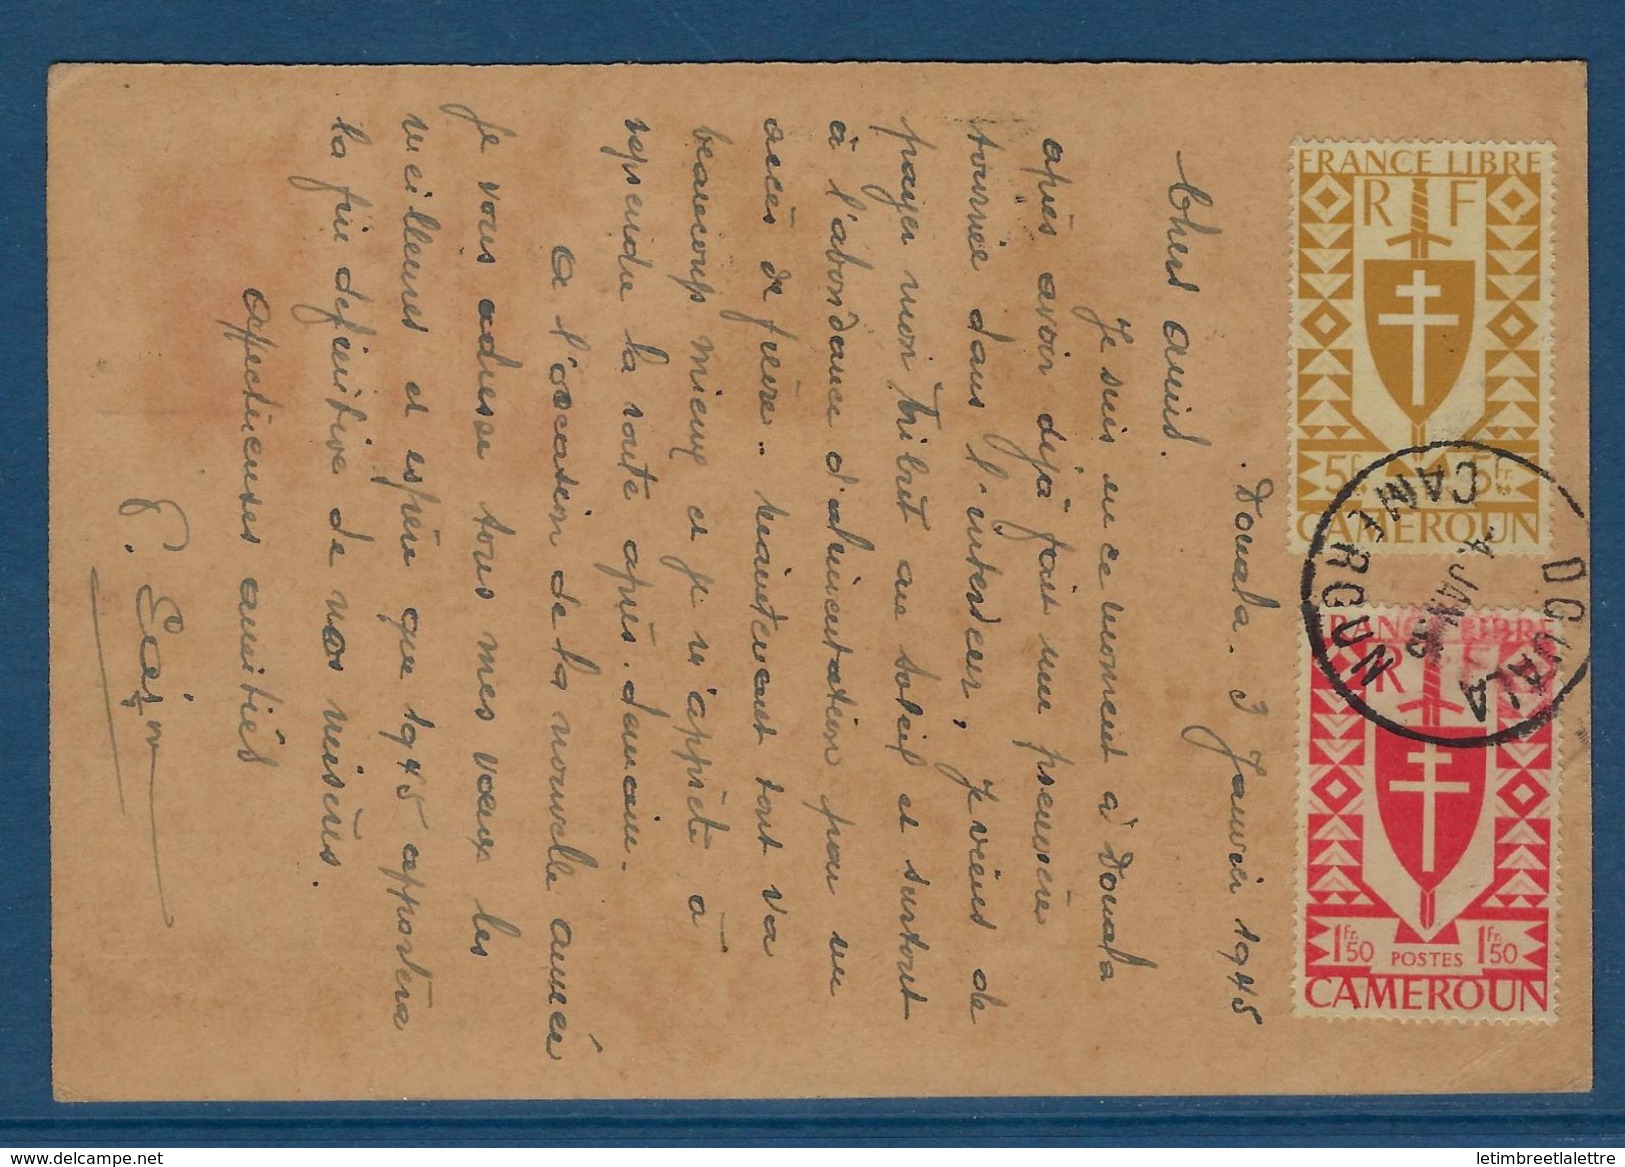 Douala. 3 Janvier 1945
Chers amis.
Je suis en ce moment à Douala
après avoir déjà fait une première
tournée dans l'intérieur, je viens de
payer mon tribut au soleil et surtout
à l'abondance d'alimentation par un
accès de fièvre. maintenant tout va
beaucoup mieux et je m'apprète à
reprendre la route après-demain.
A l'occasion de la nouvelle année
je vous adresse tous mes vœux les
meilleures et espère que 1945 apportera
la fin définitive de nos misères.
affectueuses amitiés
FRANCE LIBRE
R F
5 Fr. 5 Fr.
CAMEROUN
FRANCE LIBRE
R F
1 Fr. 50 POSTES 1 Fr. 50
CAMEROUN
DOUALA
4 JANV. 45
CAMEROUN
www.delcampe.net
letimbreetlalettre